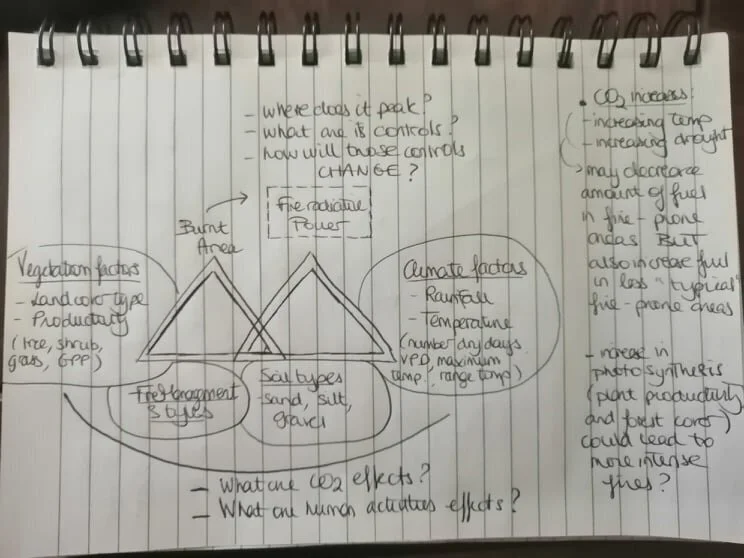 - where does it peak?
- what are its controls?
- how will those controls
CHANGE?
Fire radiative
Power
Burnt
Area
Vegetation factors
- Land cover type
- Productivity
(tree, shrub,
grass, GPP)
Climate factors
- Rainfall
- Temperature
(number dry days
VPD, maximum
temp., range temp)
Fire Managment
Styles
Soil types
- sand, silt,
gravel
- What are CO2 effects?
- What are human activities effects?
• CO2 increases:
- increasing temp
- increasing drought
may decrease
amount of fuels
in fire-prone
areas BUT
also increase fuel
in less "typical"
fire-prone areas
- increase in
photosynthesis
(plant productivity
and forest cover)
could lead to
more intense
fires?